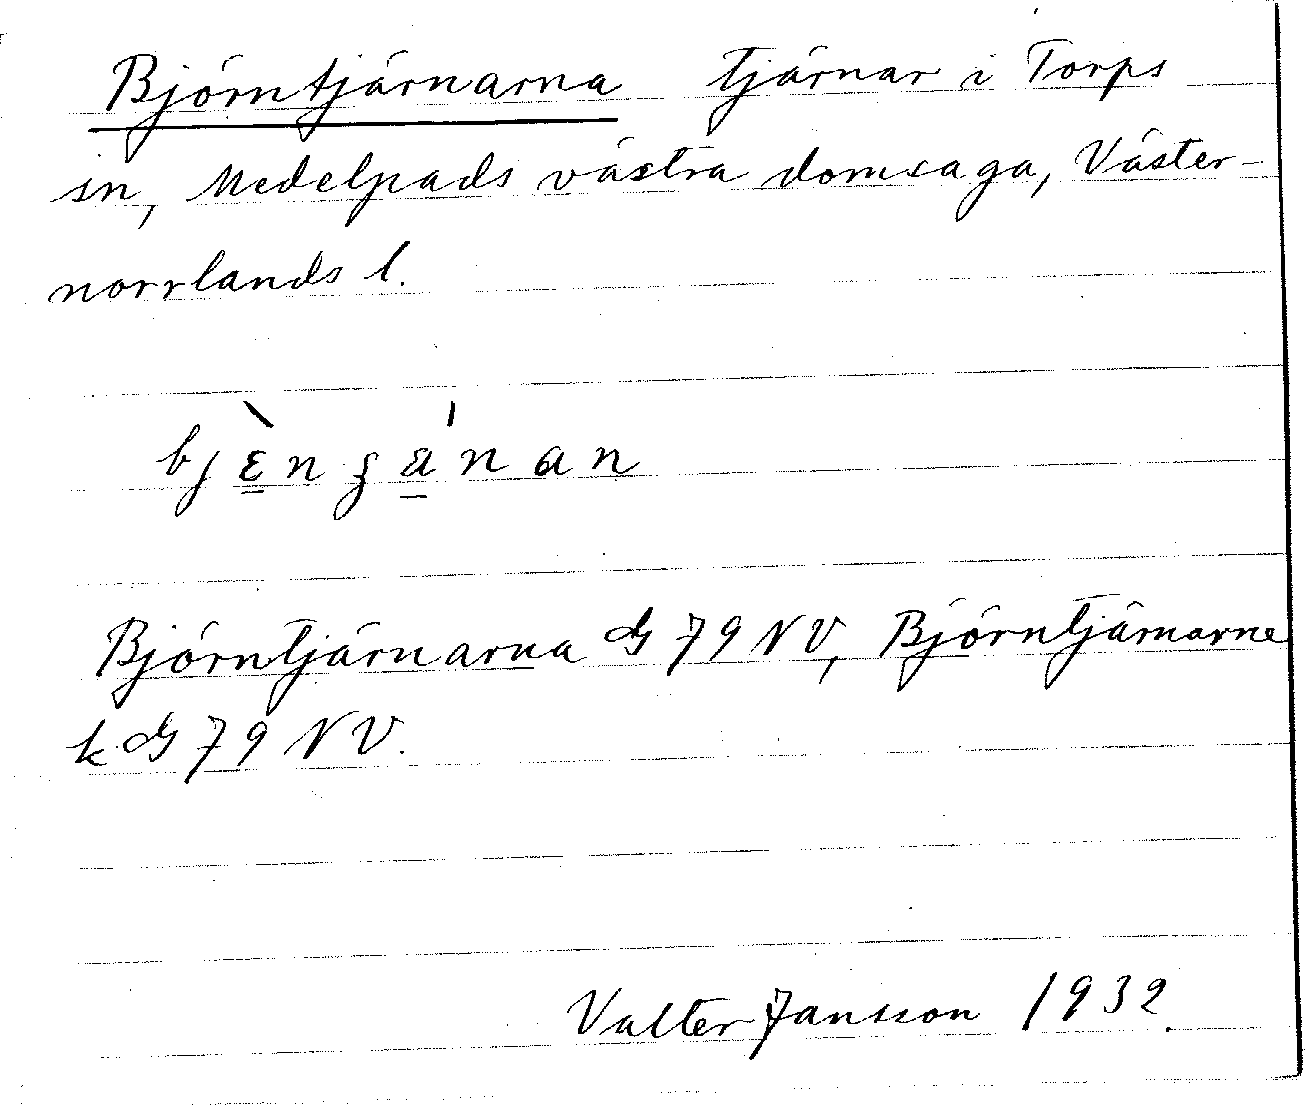 Björntjärnarna tjärnar i Torps
sn, Medelpads västra domsaga, Väster-
norrlands l.
bjɛ̀nʒánan
Björntjärnarna G 79 NV, Björntjärnarne
k G 79 NV.
Valter Jansson 1932.